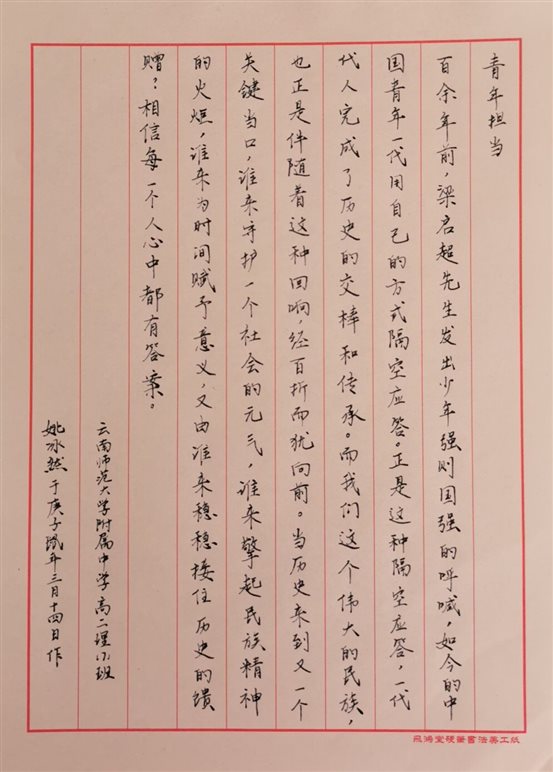 青年担当
百余年前，梁启超先生发出少年强则国强的呼喊，如今的中
国青年一代用自己的方式隔空应答。正是这种隔空应答，一代
代人完成了历史的交棒和传承。而我们这个伟大的民族，
也正是伴随着这种回响，经百折而犹向前。当历史来到又一个
关键当口，谁来守护一个社会的元气，谁来擎起民族精神
的火炬，谁来为时间赋予意义，又由谁来稳稳接住历史的馈
赠？相信每一个人心中都有答案。
云南师范大学附属中学高二理17班
姚冰然于庚子鼠年三月十四日作
飛鴻堂硬筆書法美工紙